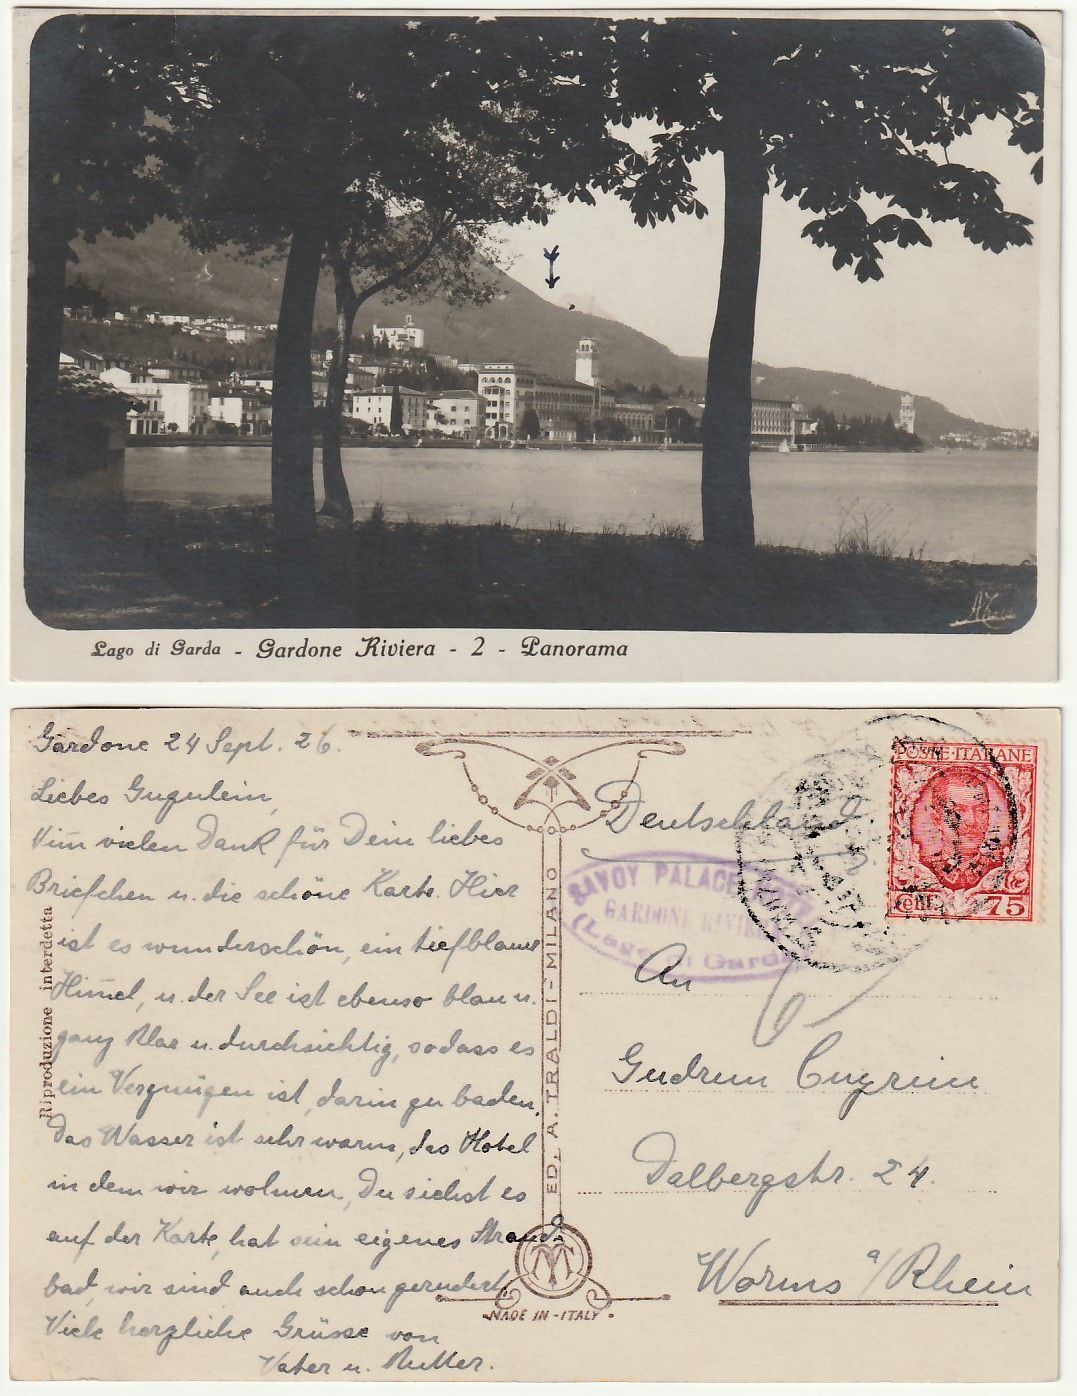 Lago di Garda - Gardone Riviera - 2 - Panorama
Gardone 24 Sept. 26.
Liebes Gugulein,
Nim̅ vielen Dank für Dein liebes
Briefchen u. die schöne Karte. Hier
ist es wunderschön, ein tiefblauer
Him̅el, u. der See ist ebenso blau u.
ganz klar u. durchsichtig, sodass es
ein Vergnügen ist, darin zu baden.
Das Wasser ist sehr warm, das Hotel
in dem wir wohnen, Du siehst es
auf der Karte, hat sein eigenes Strand
bad, wir sind auch schon gerudert.
Viele herzliche Grüsse von
Vater u. Mutter.
Riproduzione interdetta
ED. A. TRALDI - MILANO
MADE IN - ITALY
POSTE·ITALIANE
75
Deutschland
SAVOY PALACE
GARDONE RIVIERA
(Lago di Garda
An
Gudrun
Dalbergstr. 24.
Worms a/Rhein